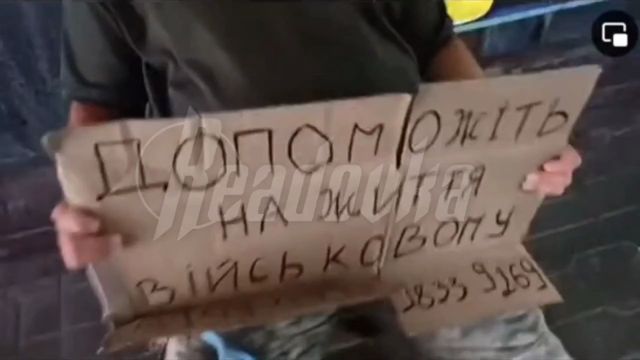 ДОПОМОЖІТЬ
НА ЖИТТЯ
ВІЙСЬКОВОМУ
9833 9269
Readovka